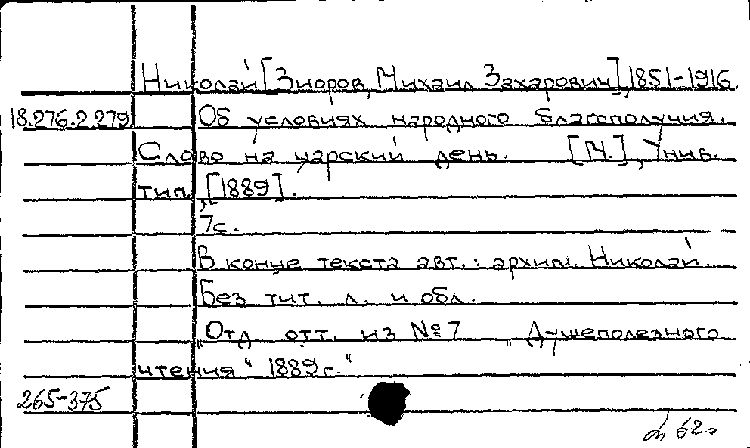 Николай [Зиоров, Михаил Захарович], 1851-1916.
18.276.2.279 Об условиях народного благополучия.
Слово на царский день. [М.], Унив.
тип., [1889].
7с.
В конце текста авт.: архим. Николай.
Без тит. л. и обл.
„Отд. отт. из №7 „Душеполезного
чтения" 1889г."
265-375
62г